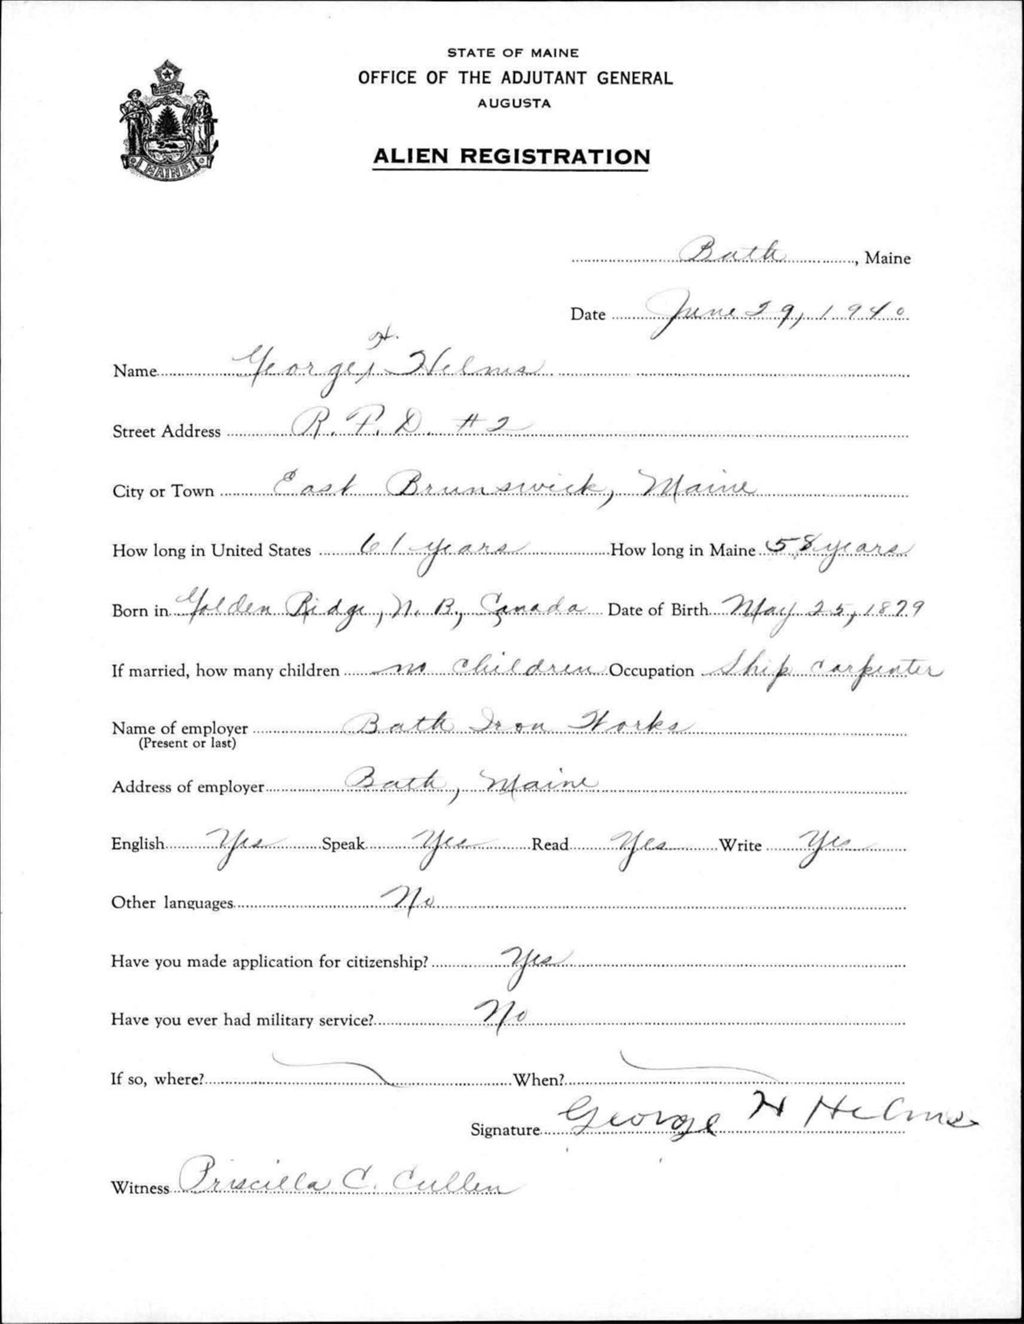 STATE OF MAINE
OFFICE OF THE ADJUTANT GENERAL
AUGUSTA
ALIEN REGISTRATION
MAINE
Bath, Maine
Date June 29, 1940
H.
Name George Helms
Street Address R. F. D. #2
City or Town East Brunswick, Maine
How long in United States 61 years How long in Maine 58 years
Born in Golden Ridge, N. B., Canada Date of Birth May 25, 1879
If married, how many children no children Occupation Ship carpenter
Name of employer Bath Iron Works
(Present or last)
Address of employer Bath, Maine
English Yes Speak Yes Read Yes Write Yes
Other languages No
Have you made application for citizenship? Yes
Have you ever had military service? No
If so, where? When?
Signature George H Helms
Witness Priscilla C. Cullen